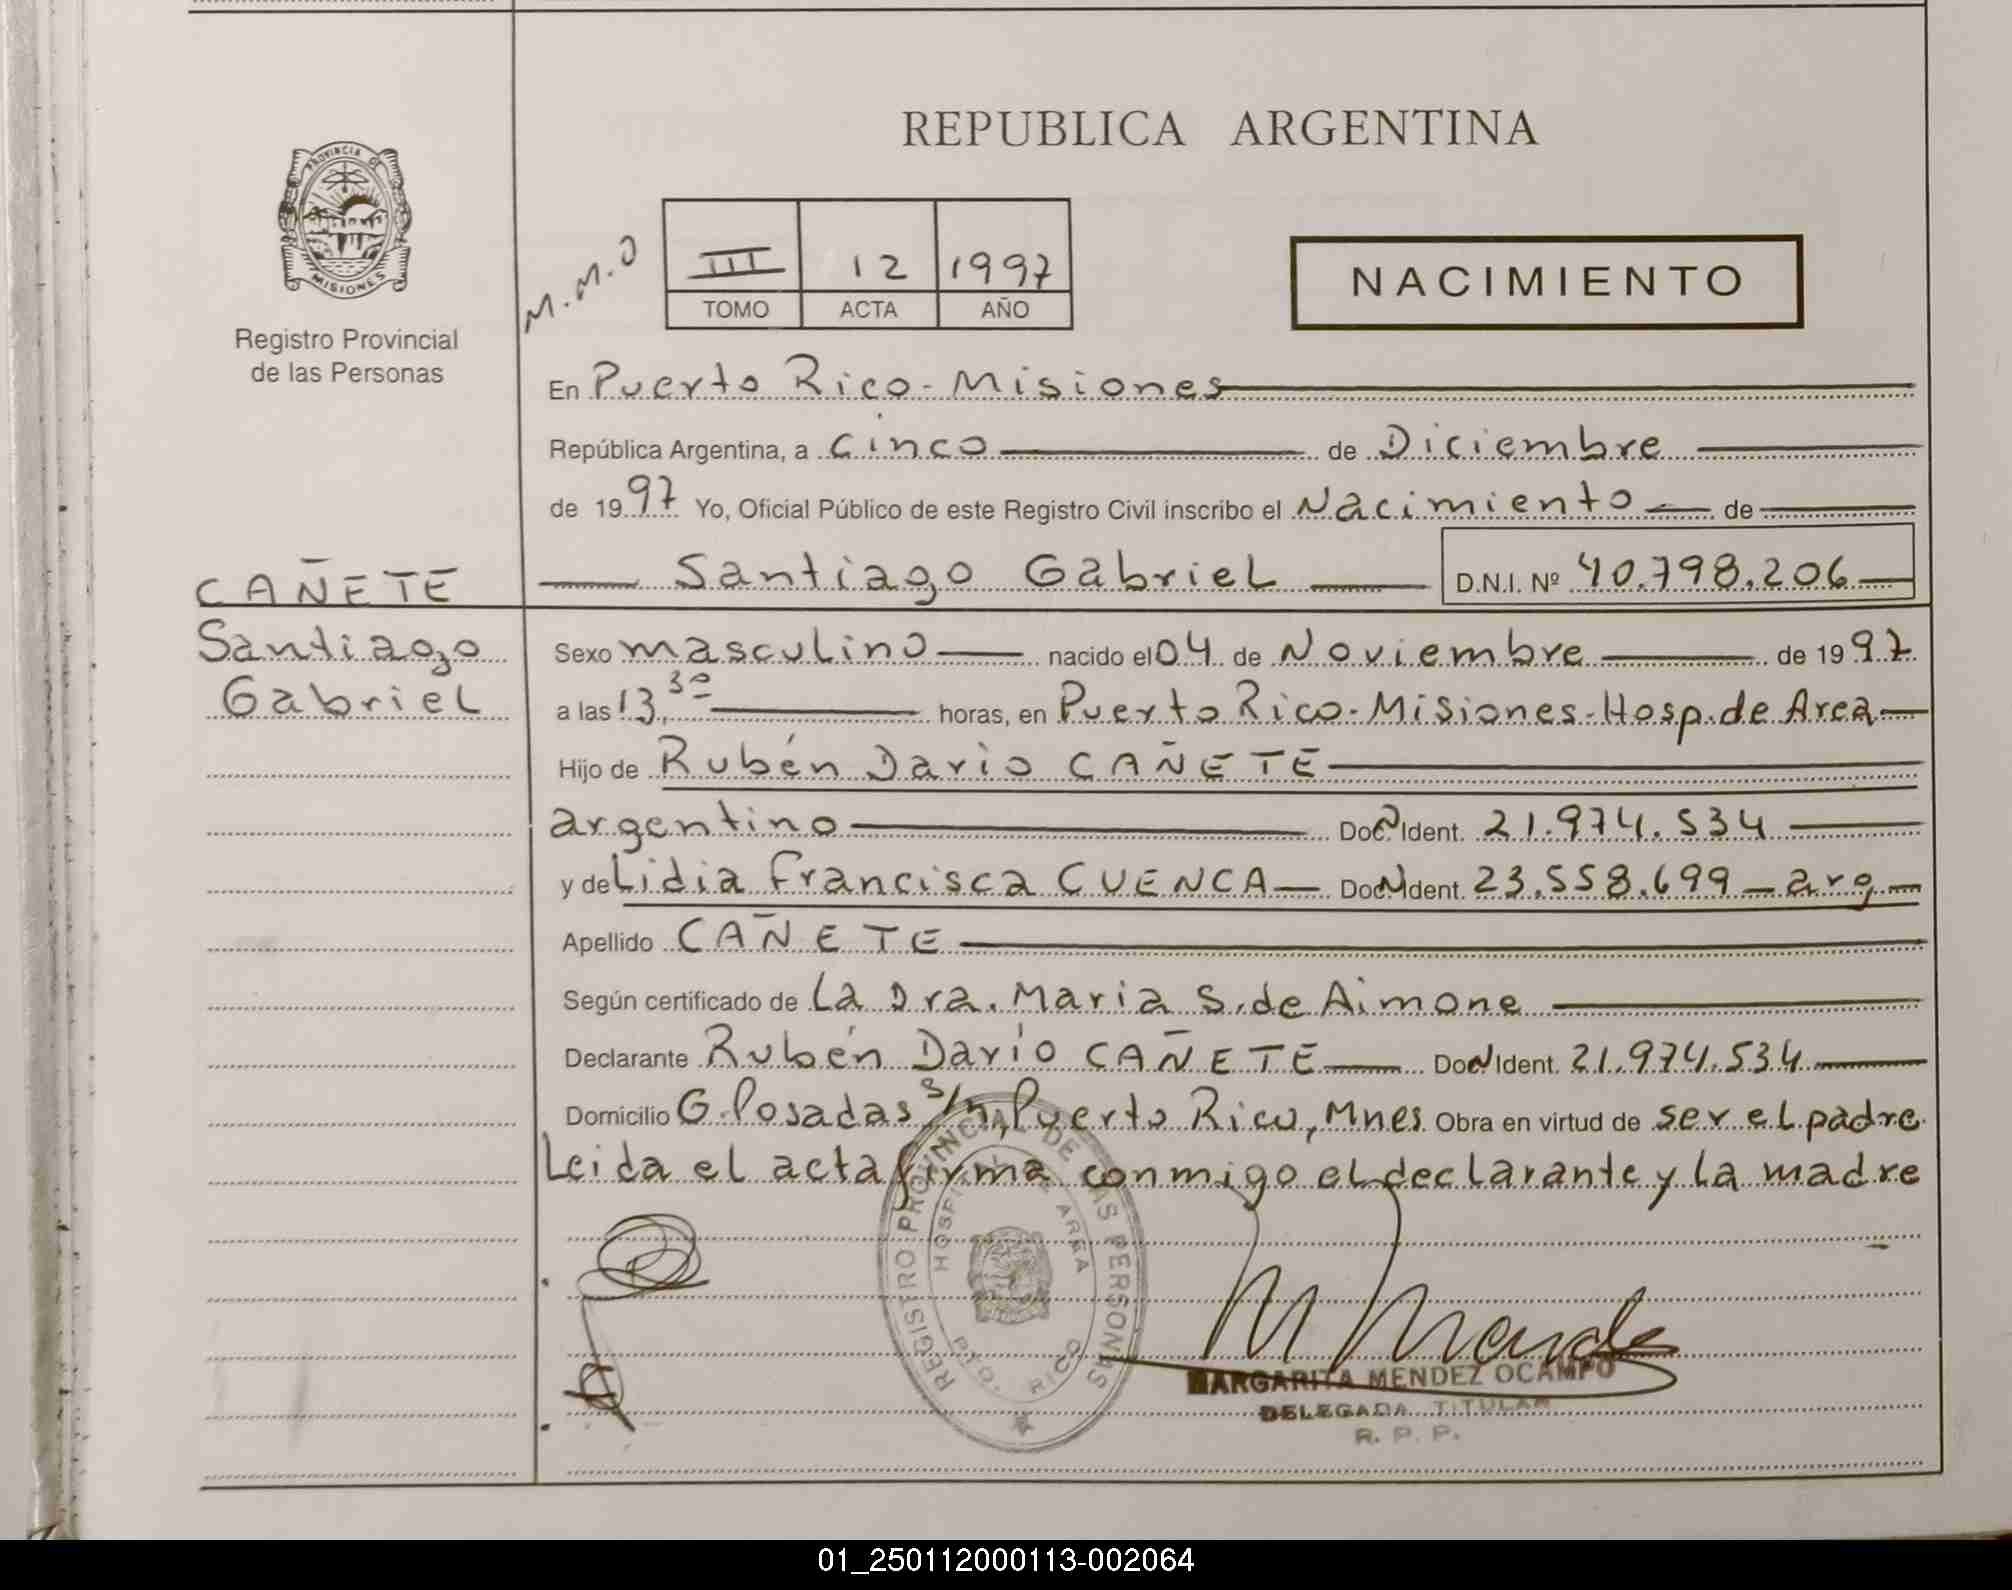 REPUBLICA ARGENTINA
PROVINCIA DE
MISIONES
Registro Provincial
de las Personas
M.M.O
III 12 1997
TOMO ACTA AÑO
NACIMIENTO
En Puerto Rico - Misiones
República Argentina, a cinco de Diciembre
de 1997 Yo, Oficial Público de este Registro Civil inscribo el Nacimiento de
Santiago Gabriel D.N.I. Nº 40.798.206
CAÑETE
Santiago
Gabriel
Sexo masculino nacido el 04 de Noviembre de 1997
a las 13,30 horas, en Puerto Rico - Misiones - Hosp. de Area
Hijo de Rubén Dario CAÑETE
argentino Doc. N Ident. 21.974.534
y de Lidia Francisca CUENCA Doc. N Ident. 23.558.699 - arg
Apellido CAÑETE
Según certificado de La Dra. Maria S. de Aimone
Declarante Rubén Darío CAÑETE Doc. N Ident. 21.974.534
Domicilio G. Posadas s/n, Puerto Rico, Mnes Obra en virtud de ser el padre
Leida el acta firma conmigo el declarante y la madre
REGISTRO PROVINCIAL DE LAS PERSONAS
HOSPITAL DE AREA
PTO. RICO
M Mendez
MARGARITA MENDEZ OCAMPO
DELEGADA TITULAR
R. P. P.
01_250112000113-002064